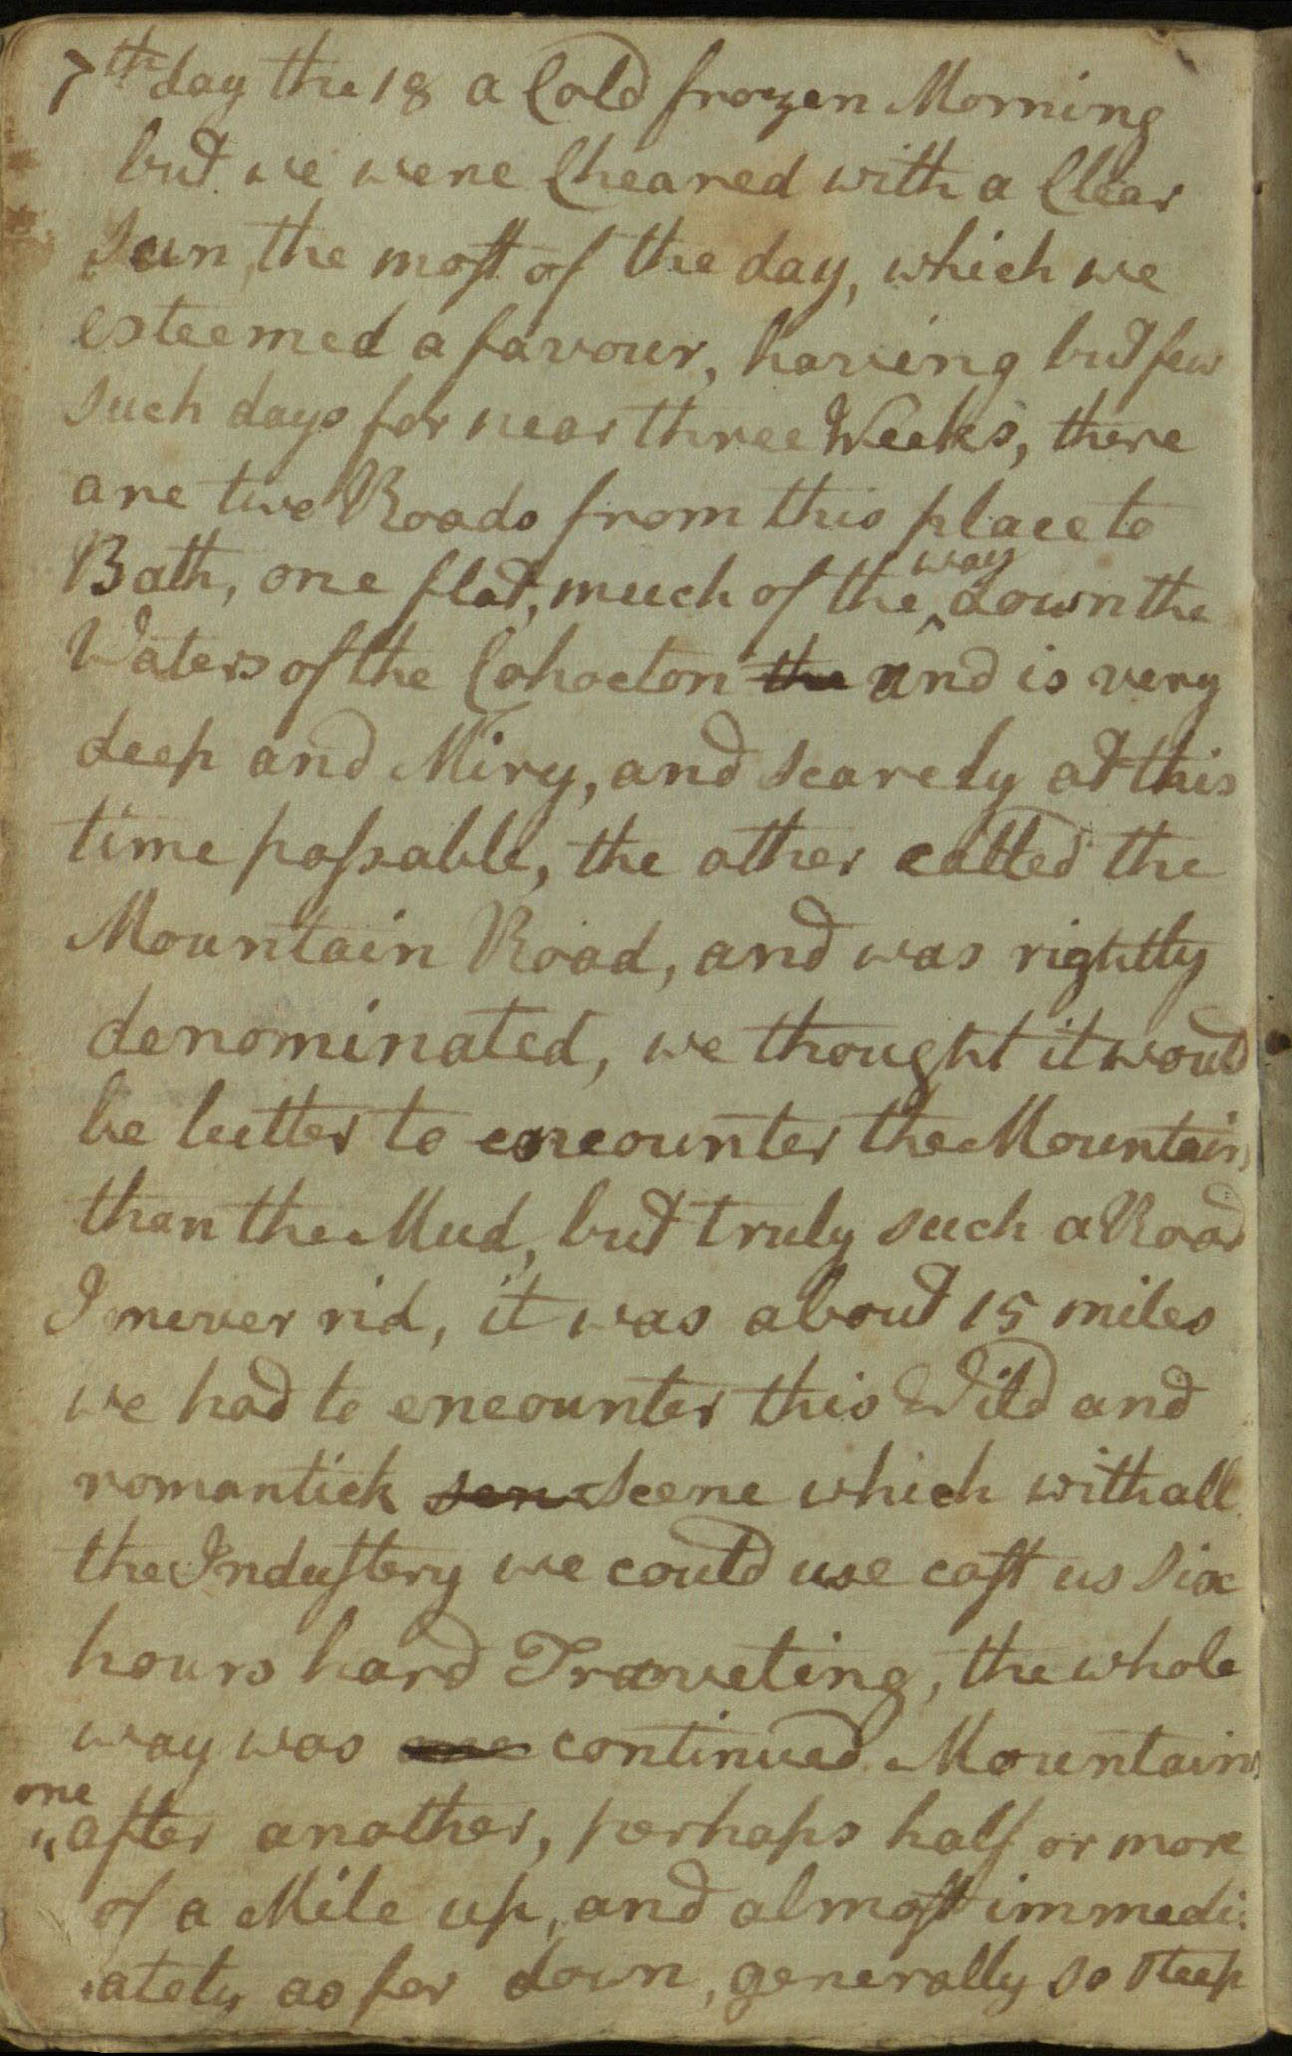 7th day the 18 a Cold frozen Morning
but we were Cheared with a Clear
Sun, the most of the day, which we
esteemed a favour, having but few
such days for near three Weeks, there
are two Roads from this place to
Bath, one flat, much of the ^way down the
Waters of the Cohocton the and is very
deep and Miry, and scarcely at this
time passable, the other called the
Mountain Road, and was rightly
denominated, we thought it would
be better to encounter the Mountains
than the Mud, but truly such a Road
I never rid, it was about 15 miles
we had to encounter this Wild and
romantick sen Scene which with all
the Industery we could use cost us Six
hours hard Traveling, the whole
way was one continued Mountains
one
"after another, perhaps half or more
of a Mile up, and almost immedi:
:ately as far down, generally so steep